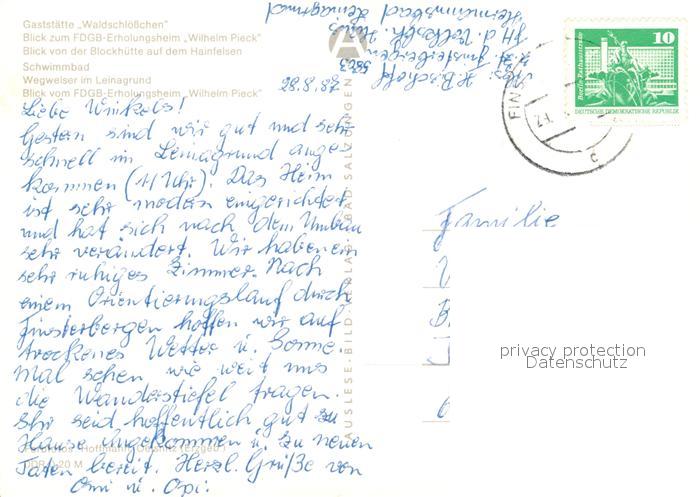 Gaststätte „Waldschlößchen"
Blick zum FDGB-Erholungsheim „Wilhelm Pieck"
Blick von der Blockhütte auf dem Hainfelsen
Schwimmbad
Wegweiser im Leinagrund
Blick vom FDGB-Erholungsheim „Wilhelm Pieck"
28.8.86
Liebe Winkels!
Gestern sind wir gut und sehr
schnell im Leinagrund ange-
kommen (11 Uhr). Das Heim
ist sehr modern eingerichtet
und hat sich nach dem Umbau
sehr verändert. Wir haben ein
sehr ruhiges Zimmer. Nach
einem Orientierungslauf durch
Finsterbergen hoffen wir auf
trockenes Wetter u. Sonne.
Mal sehen wie weit uns
die Wanderstiefel tragen.
Ihr seid hoffentlich gut zu
Hause angekommen u. zu neuen
Taten bereit. Herzl. Grüße von
Omi u. Opi.
Hoffmann, Oelsnitz (Erzgeb.)
DDR 0,20 M
AUSLESE-BILD-VERLAG BAD SALZUNGEN
H. Bischoff
z. Zt. Finsterbergen
5803
Leinagrund
10
Berlin, Rathausstraße
DEUTSCHE DEMOKRATISCHE REPUBLIK
FINS
c
Familie
privacy protection
Datenschutz